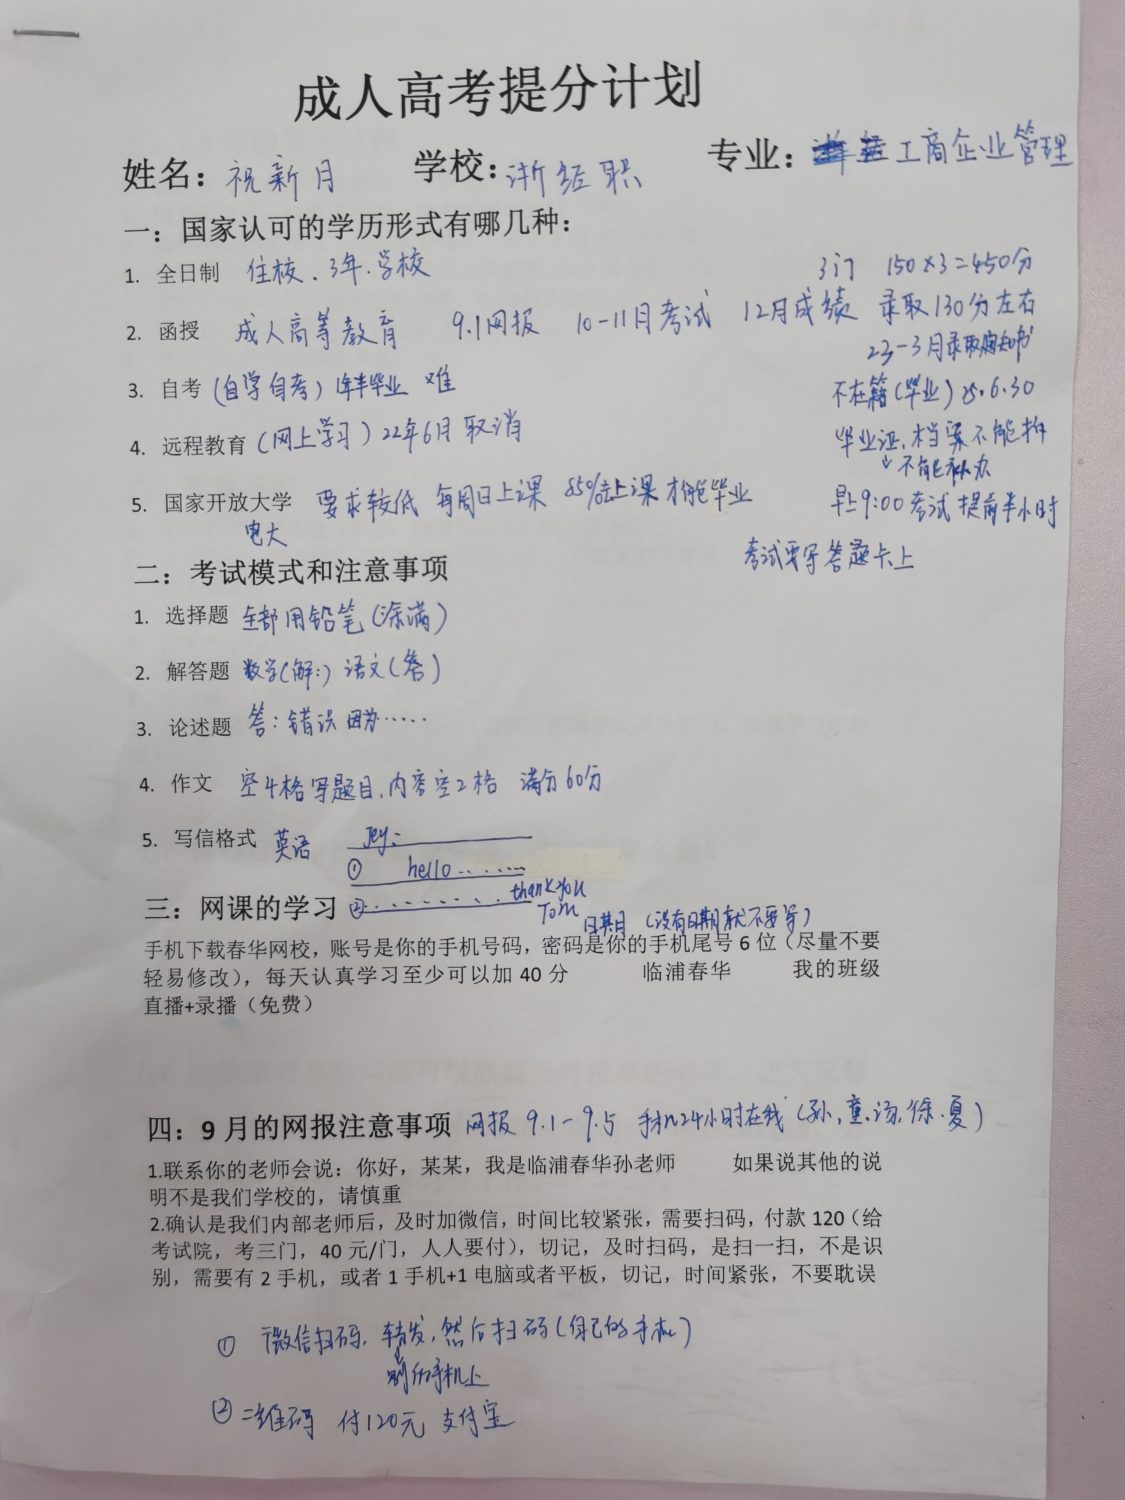 成人高考提分计划
姓名：祝新月 学校：浙经职 专业：工商企业管理
一：国家认可的学历形式有哪几种：
1. 全日制 住校、3年、学校 3门 150×3=450分
2. 函授 成人高等教育 9.1网报 10-11月考试 12月成绩 录取130分左右
23-3月录取通知书
3. 自考（自学自考）1年半毕业 难 不在籍（毕业）25.6.30
4. 远程教育（网上学习）22年6月取消 毕业证、档案不能拆
↓不能补办
5. 国家开放大学 要求较低 每周日上课 85%上课才能毕业 早上9:00考试 提前半小时
电大
考试要写答题卡上
二：考试模式和注意事项
1. 选择题 全部用铅笔（涂满）
2. 解答题 数学（解：）语文（答）
3. 论述题 答：错误 因为……
4. 作文 空4格写题目、内容空2格 满分60分
5. 写信格式 英语
① hello……
② …… thank you
Tom
三：网课的学习 日期（没有日期就不要写）
手机下载春华网校，账号是你的手机号码，密码是你的手机尾号6位（尽量不要
轻易修改），每天认真学习至少可以加40分 临浦春华 我的班级
直播+录播（免费）
四：9月的网报注意事项 网报 9.1-9.5 手机24小时在线（孙、童、汤、徐、夏）
1.联系你的老师会说：你好，某某，我是临浦春华孙老师 如果说其他的说
明不是我们学校的，请慎重
2.确认是我们内部老师后，及时加微信，时间比较紧张，需要扫码，付款120（给
考试院，考三门，40元/门，人人要付），切记，及时扫码，是扫一扫，不是识
别，需要有2手机，或者1手机+1电脑或者平板，切记，时间紧张，不要耽误
① 微信扫码，转发，然后扫码（自己的手机）
别的手机上
② 二维码 付120元 支付宝